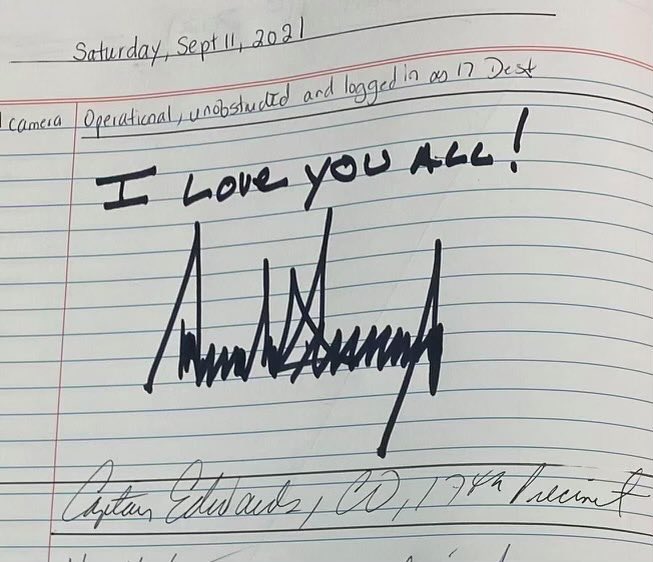 Saturday, Sept 11, 2021
camera Operational, unobstucted and logged in as 17 Desk
I Love you ALL!
Captain Edwards, CO, 17th Precinct